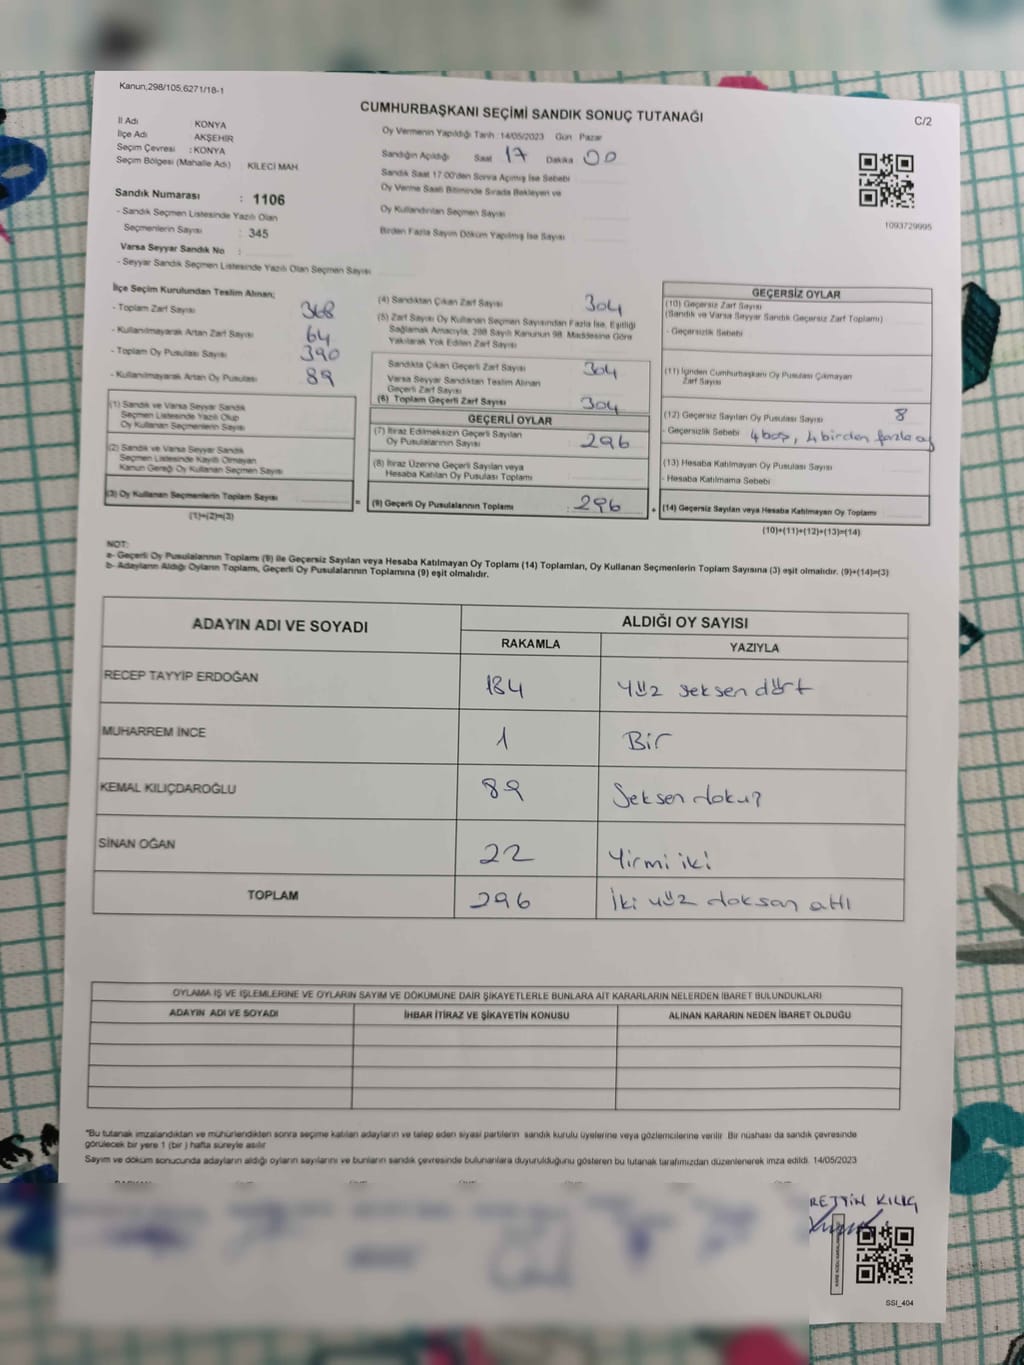 Kanun,298/105,6271/18-1
CUMHURBAŞKANI SEÇİMİ SANDIK SONUÇ TUTANAĞI
C/2
İl Adı : KONYA
İlçe Adı : AKŞEHİR
Seçim Çevresi : KONYA
Seçim Bölgesi (Mahalle Adı) : KİLECİ MAH.
Oy Vermenin Yapıldığı Tarih :14/05/2023 Gün Pazar
Sandığın Açıldığı Saat 17 Dakika 00
Sandık Saat 17:00'den Sonra Açılmış İse Sebebi
Oy Verme Saati Bitiminde Sırada Bekleyen ve
Oy Kullandırılan Seçmen Sayısı
Birden Fazla Sayım Döküm Yapılmış İse Sayısı
1093729995
Sandık Numarası : 1106
- Sandık Seçmen Listesinde Yazılı Olan
Seçmenlerin Sayısı : 345
Varsa Seyyar Sandık No :
- Seyyar Sandık Seçmen Listesinde Yazılı Olan Seçmen Sayısı
İlçe Seçim Kurulundan Teslim Alınan;
- Toplam Zarf Sayısı 368
- Kullanılmayarak Artan Zarf Sayısı 64
- Toplam Oy Pusulası Sayısı 390
- Kullanılmayarak Artan Oy Pusulası 89
(1) Sandık ve Varsa Seyyar Sandık
Seçmen Listesinde Yazılı Olup
Oy Kullanan Seçmenlerin Sayısı
(2) Sandık ve Varsa Seyyar Sandık
Seçmen Listesinde Kayıtlı Olmayan
Kanun Gereği Oy Kullanan Seçmen Sayısı
(3) Oy Kullanan Seçmenlerin Toplam Sayısı
(1)+(2)=(3)
(4) Sandıktan Çıkan Zarf Sayısı 304
(5) Zarf Sayısı Oy Kullanan Seçmen Sayısından Fazla İse, Eşitliği
Sağlamak Amacıyla, 298 Sayılı Kanunun 98. Maddesine Göre
Yakılarak Yok Edilen Zarf Sayısı
Sandıkta Çıkan Geçerli Zarf Sayısı 304
Varsa Seyyar Sandıktan Teslim Alınan
Geçerli Zarf Sayısı
(6) Toplam Geçerli Zarf Sayısı 304
GEÇERLİ OYLAR
(7) İtiraz Edilmeksizin Geçerli Sayılan
Oy Pusulalarının Sayısı : 296
(8) İtiraz Üzerine Geçerli Sayılan veya
Hesaba Katılan Oy Pusulası Toplamı
= (9) Geçerli Oy Pusulalarının Toplamı : 296 +
GEÇERSİZ OYLAR
(10) Geçersiz Zarf Sayısı
(Sandık ve Varsa Seyyar Sandık Geçersiz Zarf Toplamı)
- Geçersizlik Sebebi
(11) İçinden Cumhurbaşkanı Oy Pusulası Çıkmayan
Zarf Sayısı
(12) Geçersiz Sayılan Oy Pusulası Sayısı 8
- Geçersizlik Sebebi 4 boş, 4 birden fazla oy
(13) Hesaba Katılmayan Oy Pusulası Sayısı
- Hesaba Katılmama Sebebi
(14) Geçersiz Sayılan veya Hesaba Katılmayan Oy Toplamı
(10)+(11)+(12)+(13)=(14)
NOT:
a- Geçerli Oy Pusulalarının Toplamı (9) ile Geçersiz Sayılan veya Hesaba Katılmayan Oy Toplamı (14) Toplamları, Oy Kullanan Seçmenlerin Toplam Sayısına (3) eşit olmalıdır. (9)+(14)=(3)
b- Adayların Aldığı Oyların Toplamı, Geçerli Oy Pusulalarının Toplamına (9) eşit olmalıdır.
ADAYIN ADI VE SOYADI
ALDIĞI OY SAYISI
RAKAMLA YAZIYLA
RECEP TAYYİP ERDOĞAN 184 Yüz seksen dört
MUHARREM İNCE 1 Bir
KEMAL KILIÇDAROĞLU 89 Seksen dokuz
SİNAN OĞAN 22 Yirmi iki
TOPLAM 296 İki yüz doksan altı
OYLAMA İŞ VE İŞLEMLERİNE VE OYLARIN SAYIM VE DÖKÜMÜNE DAİR ŞİKAYETLERLE BUNLARA AİT KARARLARIN NELERDEN İBARET BULUNDUKLARI
ADAYIN ADI VE SOYADI İHBAR İTİRAZ VE ŞİKAYETİN KONUSU ALINAN KARARIN NEDEN İBARET OLDUĞU
*Bu tutanak imzalandıktan ve mühürlendikten sonra seçime katılan adayların ve talep eden siyasi partilerin sandık kurulu üyelerine veya gözlemcilerine verilir. Bir nüshası da sandık çevresinde
görülecek bir yere 1 (bir) hafta süreyle asılır
Sayım ve döküm sonucunda adayların aldığı oyların sayılarını ve bunların sandık çevresinde bulunanlara duyurulduğunu gösteren bu tutanak tarafımızdan düzenlenerek imza edildi. 14/05/2023
RETTİN KILIÇ
SSİ_404